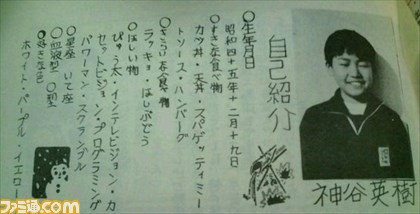 自己紹介
●生年月日
昭和四十五年十二月十九日
●すきな食べ物
カツ丼・天丼・スパゲッティミー
トソース・ハンバーグ
●きらいな食べ物
ラッキョ・ほしぶどう
●ほしい物
ぴゅう太・インテレビジョン・カ
セットビジョン・プログラミング
パワーマン・スクランブル
●星座 いて座
●血液型 O型
●好きな色
ホワイト・パープル・イエロー
神谷英樹
ファミ通.com